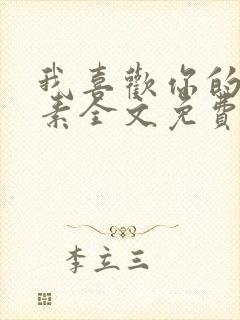 我喜歡你的
素全文免費
李立三